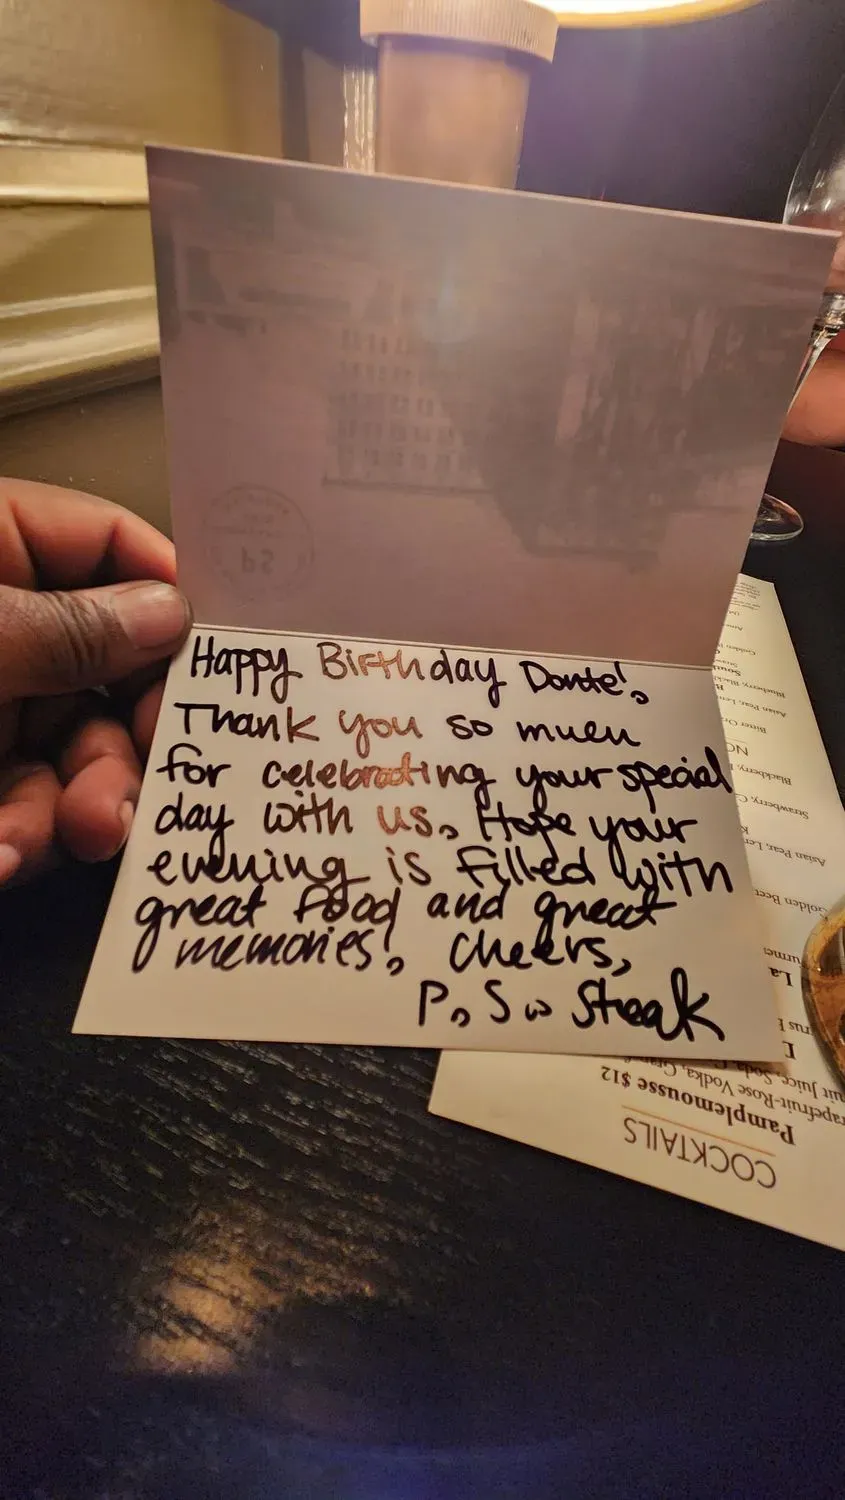 Happy Birthday Donte!
Thank you so much
for celebrating your special
day with us. Hope your
evening is filled with
great food and great
memories! Cheers,
P.S. Steak
PS
COCKTAILS
Pamplemousse $12
Grapefruit-Rose Vodka,
Juice, Soda,
La
Golden Beet
Asian Pear,
Strawberry,
Blackberry,
Bitter
Asian Pear,
Blueberry,
Golden